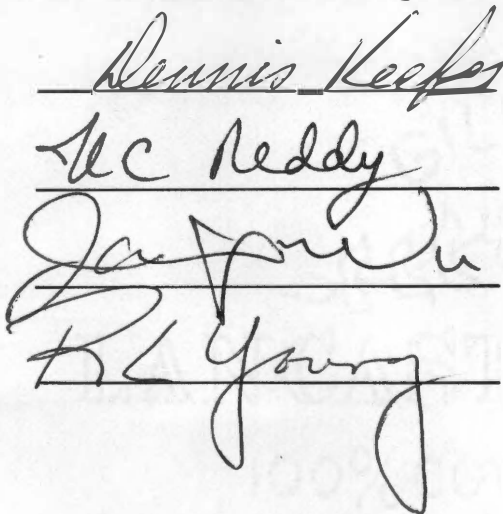 Dennis Keefer
K C Reddy
Wu
R L Young